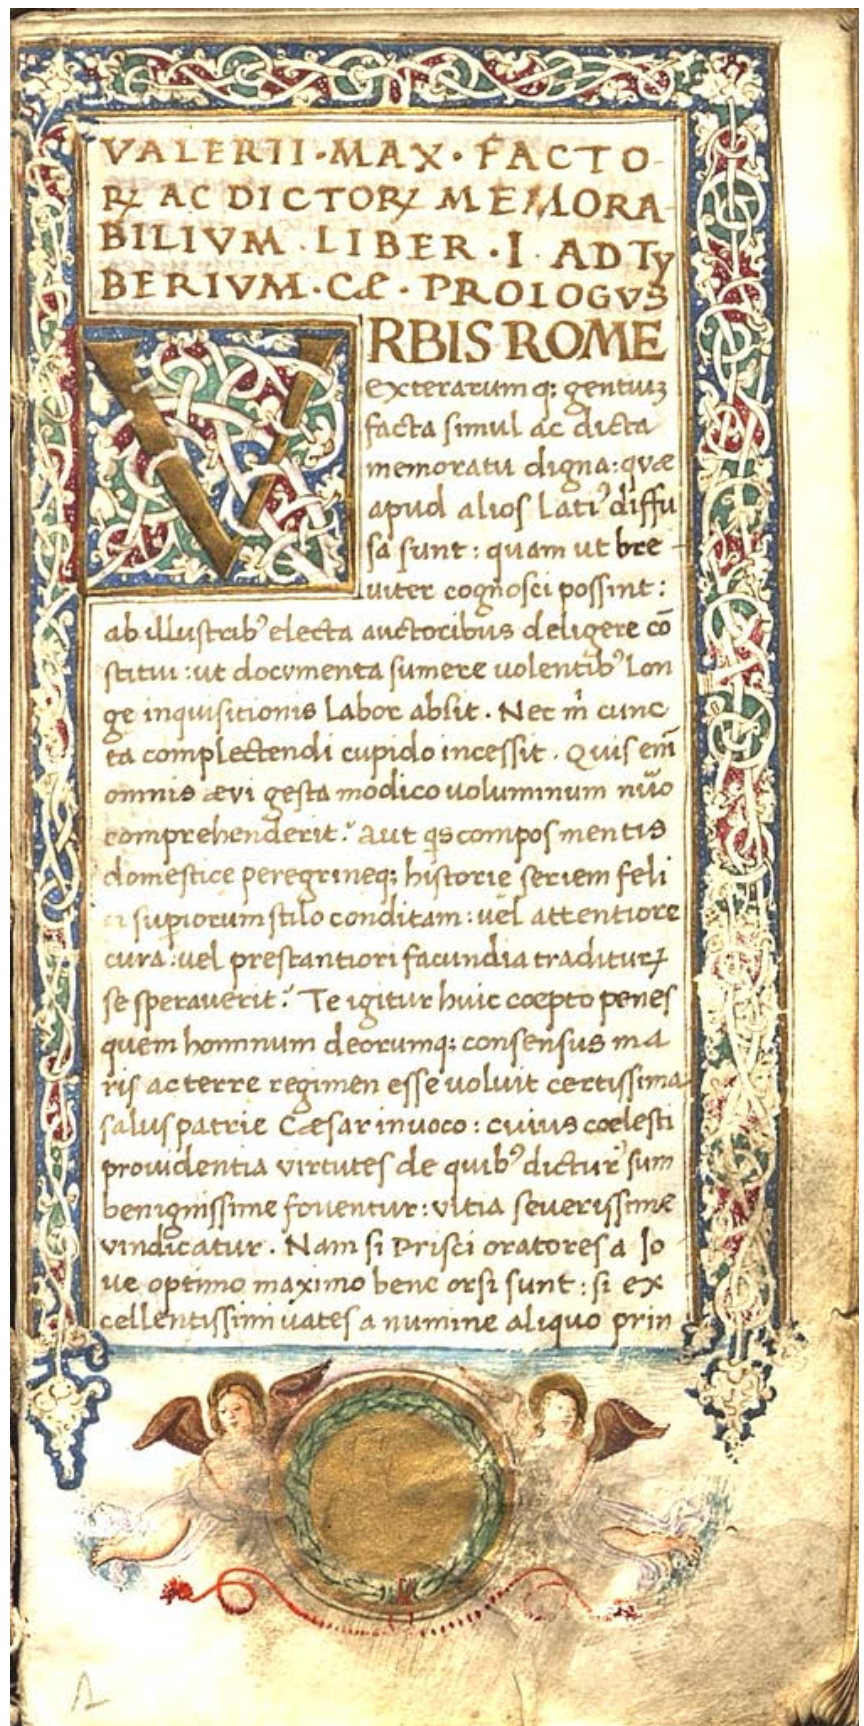 VALERII·MAX·FACTO
Rꝝ AC DICTORꝝ MEMORA
BILIVM·LIBER·I·AD TY
BERIVM·CÆ·PROLOGVS
VRBIS ROME
exterarumq; gentiuꝫ
facta simul ac dicta
memoratu digna: quæ
apud alios Lati⁹ diffu
sa sunt: quam ut bre
uiter cognosci possint:
ab illustrib⁹ electa auctoribus deligere cō
stitui: ut documenta sumere uolentib⁹ Lon
ge inquisitionis Labor absit. Nec m̄ cunc
ta complectendi cupido incessit. Quis em̄
omnis ævi gesta modico uoluminum nūo
comprehenderit? Aut qs compos mentis
domestice peregrineq; historie seriem feli
ci supiorum stilo conditam: uel attentiore
cura: uel prestantiori facundia traditurꝝ
se sperauerit? Te igitur huic cœpto penes
quem hominum deorumq; consensus ma
ris ac terre regimen esse uoluit certissima
salus patrie Cæsar inuoco: cuius cœlesti
prouidentia virtutes de quib⁹ dictur⁹ sum
benignissime fouentur: vitia seuerissime
vindicatur. Nam si Prisci oratores a Io
ue optimo maximo bene orsi sunt: si ex
cellentissimi uates a numine aliquo prin